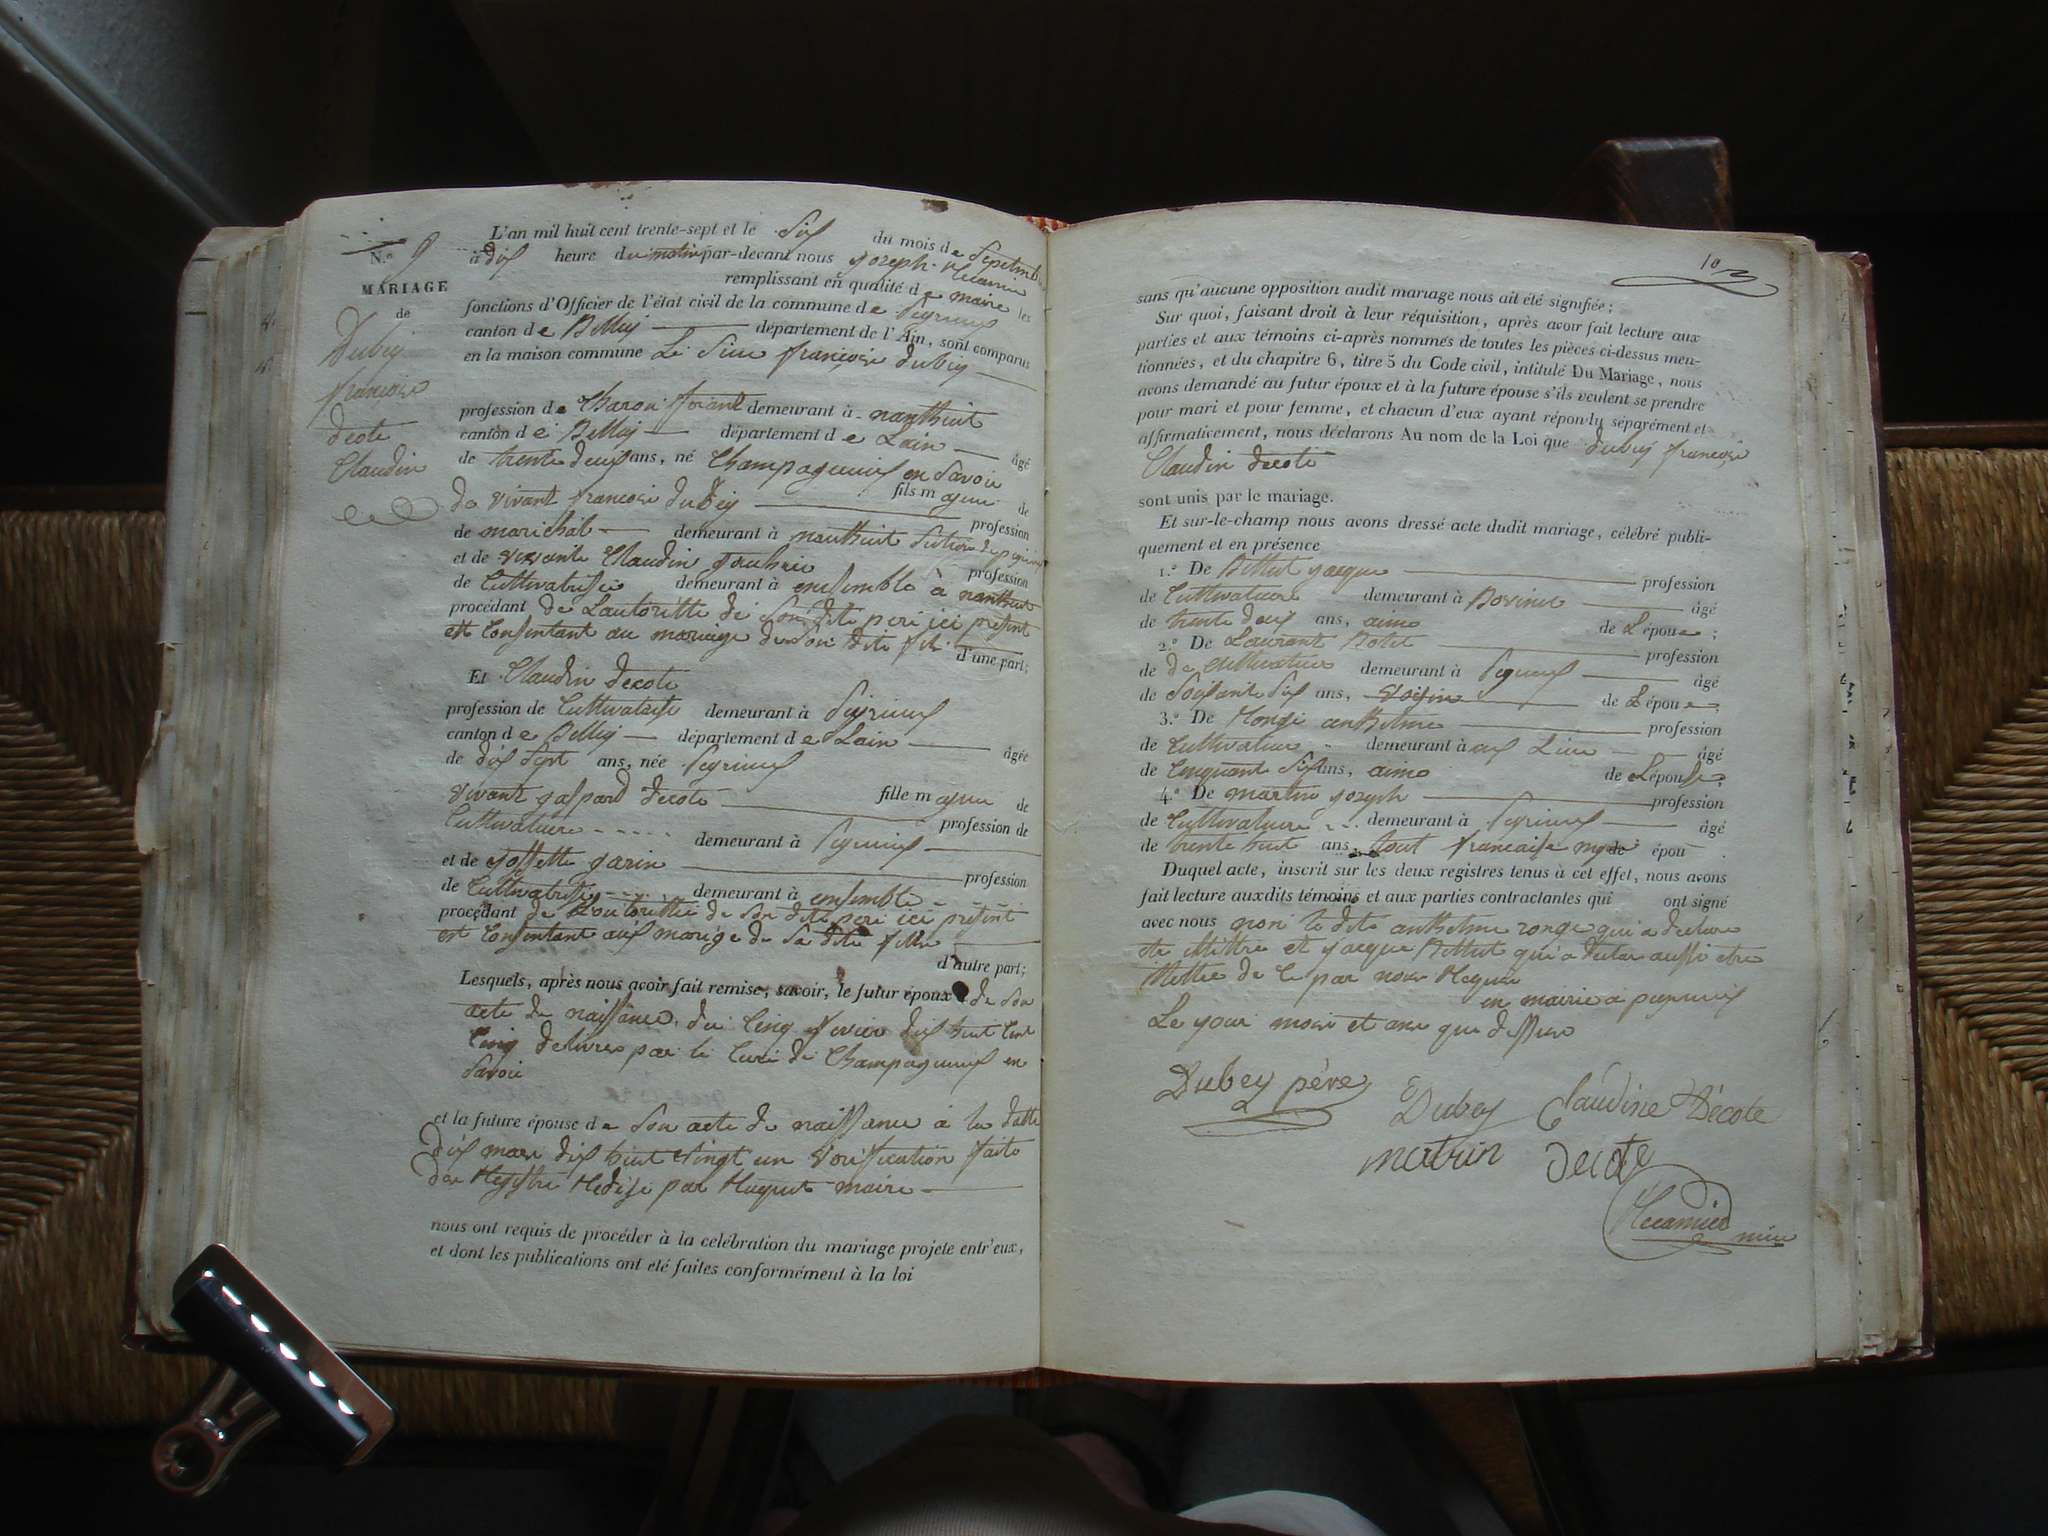 N.o 9
MARIAGE
de
Dubey
françois
decote
Claudin
L'an mil huit cent trente-sept et le Six du mois de Septembre
à dix heure du matin par-devant nous joseph
remplissant en qualité de maire les
fonctions d'Officier de l'état civil de la commune de Peyrieux
canton de Belley département de l'Ain, sont comparus
en la maison commune Le Sieur françois dubey
profession de Charon demeurant à nanthuit
canton de Belley département de Lain âgé
de trente deux ans, né Champagneux en Savoie
fils majeur de
de vivant francois dubey profession
de marichal demeurant à nanthuit
et de vivante Claudin profession
de Cultivatrise demeurant à ensemble à nanthuit
procédant de Lautoritté de Son dite peri ici present
est Consentant au mariage de Son dite fils d'une part;
Et Claudin decote
profession de Cultivatrise demeurant à Peyrieux
canton de Belley département de Lain âgée
de dix Sept ans, née Peyrieux
fille majeur de
vivant gaspard decote profession de
Cultivatuere demeurant à Peyrieux
et de josette garin profession
de Cultivatrise demeurant à ensemble
procédant de Lautorittée de Son dite peri ici present
est Consentant aux marige de Sa dite fille
d'autre part;
Lesquels, après nous avoir fait remise, savoir, le futur époux de Son
acte de naissance du Cinq fevier dix huit Cent
Cinq delivres par le Curé de Champagneux en
Savoie
et la future épouse de Son acte de naissance à la datte
dix mars dix huit Vingt un Verification faite
maire
nous ont requis de procéder à la celébration du mariage projeté entr'eux,
et dont les publications ont été faites conformément à la loi
10
sans qu'aucune opposition audit mariage nous ait été signifiée;
Sur quoi, faisant droit à leur réquisition, après avoir fait lecture aux
parties et aux témoins ci-après nommés de toutes les pièces ci-dessus men-
tionnées, et du chapitre 6, titre 5 du Code civil, intitulé Du Mariage, nous
avons demandé au futur époux et à la future épouse s'ils veulent se prendre
pour mari et pour femme, et chacun d'eux ayant répondu séparément et
affirmativement, nous déclarons Au nom de la Loi que dubey francois
Claudin decote
sont unis par le mariage.
Et sur-le-champ nous avons dressé acte dudit mariage, célébré publi-
quement et en présence
1.o De Bettut jacque profession
de Cultivatuere demeurant à Bovinet âgé
de trente deux ans, aimo de Lépoux;
2.o De Laurant Botet profession
de de Cultivatuere demeurant à Peyrieux âgé
de Soixante Six ans, Voisin de Lépoux;
3.o De Ronge anthelme profession
de Cultivatuer demeurant à aux Lieu âgé
de Cinquant Six ans, aimo de Lépouse;
4.o De martin joseph profession
de Cultivatuere demeurant à Peyrieux âgé
de trente huit ans, tout francaise époux
Duquel acte, inscrit sur les deux registres tenus à cet effet, nous avons
fait lecture auxdits témoins et aux parties contractantes qui ont signé
avec nous non le dite anthelme ronge qui a declare
et jacque Bettut qui a declare aussi etre
de Ce par nous Requis
en mairie à peyrieux
Le jour mois et ans que dessus
Dubey père
Dubey
Claudine Décote
matrin
decote
Recamier
mire